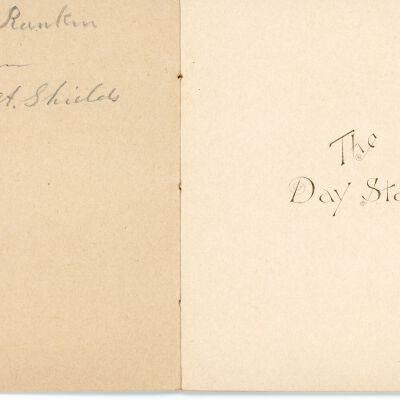 Rankin
Shields
The
Day Sta